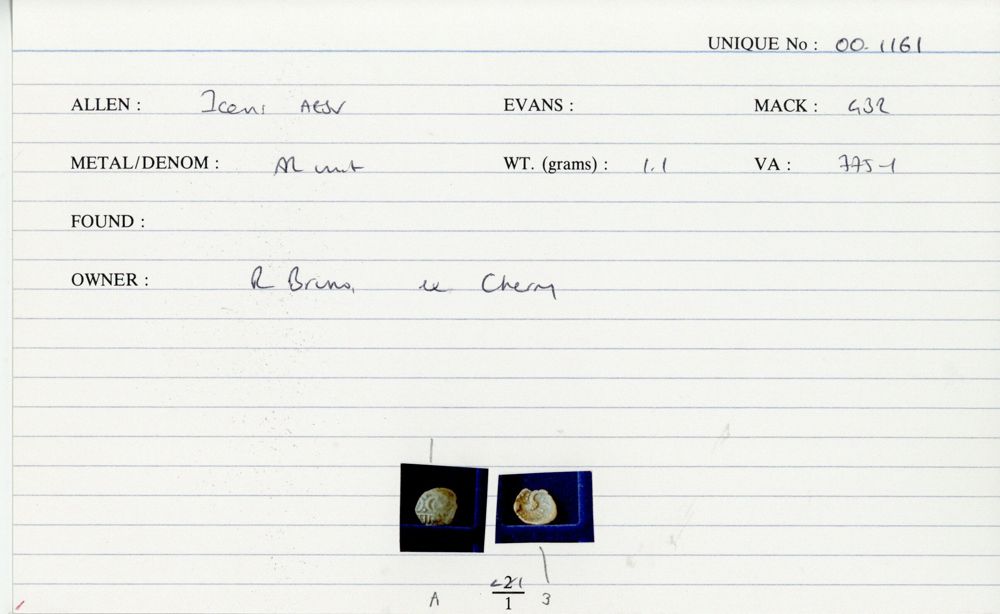 UNIQUE No : 00.1161
ALLEN : Iceni AESV EVANS : MACK : 432
METAL/DENOM : AR unit WT. (grams) : 1.1 VA : 775-1
FOUND :
OWNER : R Bruno, ex Cherry
A 1 B